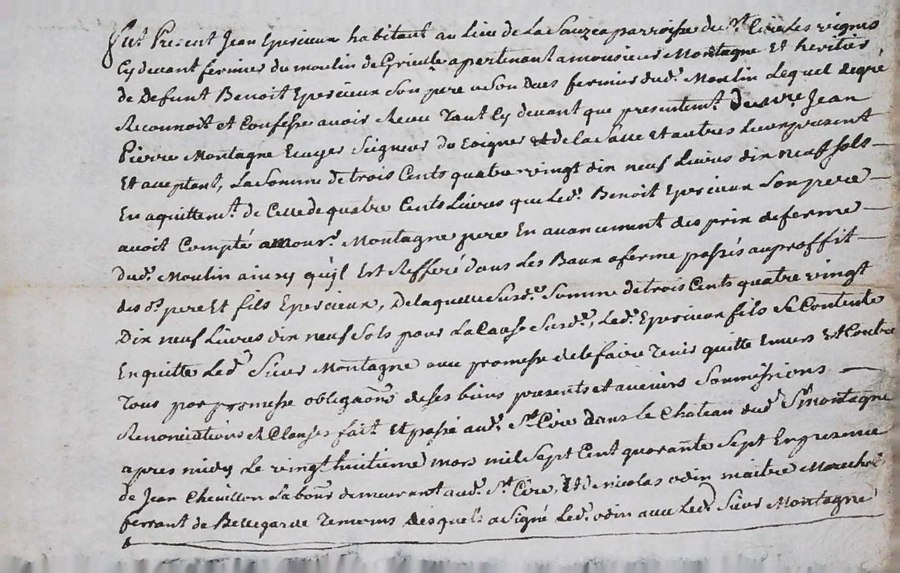 fut Present Jean Epersieux habitant au Lieu de La Souzea parroisse de St. Cire Les vignes
Cy devant fermier du moulin de appartenant a monsieur Montagne et heritier
de Defunt Benoit Epersieux Son pere vivant fermier dud. Moulin Lequel degré
Reconnoit et Confesse avoir Receu Tant Cy devant que presentemt. de mre. Jean
Pierre Montagne Ecuyer Seigneur du Poigne et de la Salle et autres Lieux present
Et acceptant, La Somme de trois Cents quatre vingt dix neuf Livres dix neuf sols
En aquittemt. de Celle de quatre Cents Livres que Led. Benoit Epersieux Son pere
avoit Compté a monsr. Montagne pere En avancement des prix de ferme
dud. Moulin ainsy qu'jl Est Refferé dans Les Baux a ferme passés au proffit
des Srs. pere Et fils Epersieux, De laquelle Susd. Somme de trois Cents quatre vingt
Dix neuf Livres dix neuf Sols pour La Cause Susd., Led. Epersieux fils Se Contente
En quitte Led. Sieur Montagne avec promesse de le faire Tenir quitte Envers Et Contre
Tous par promesse obligaons. de Ses biens presents et avenirs Sommissions
Renonciations et Clauses fait Et passé aud. St. Cire dans le Chateau dud. Sr. Montagne
apres midy Le vingt huitieme mars mil Sept Cent quarante Sept En presence
de Jean Chevillon Labourr. demeurant aud. St. Cire, Et de nicolas odin maitre Marechal
ferrant de Bellegarde Temoins desquels a Signé Led. odin avec Led. Sieur Montagne